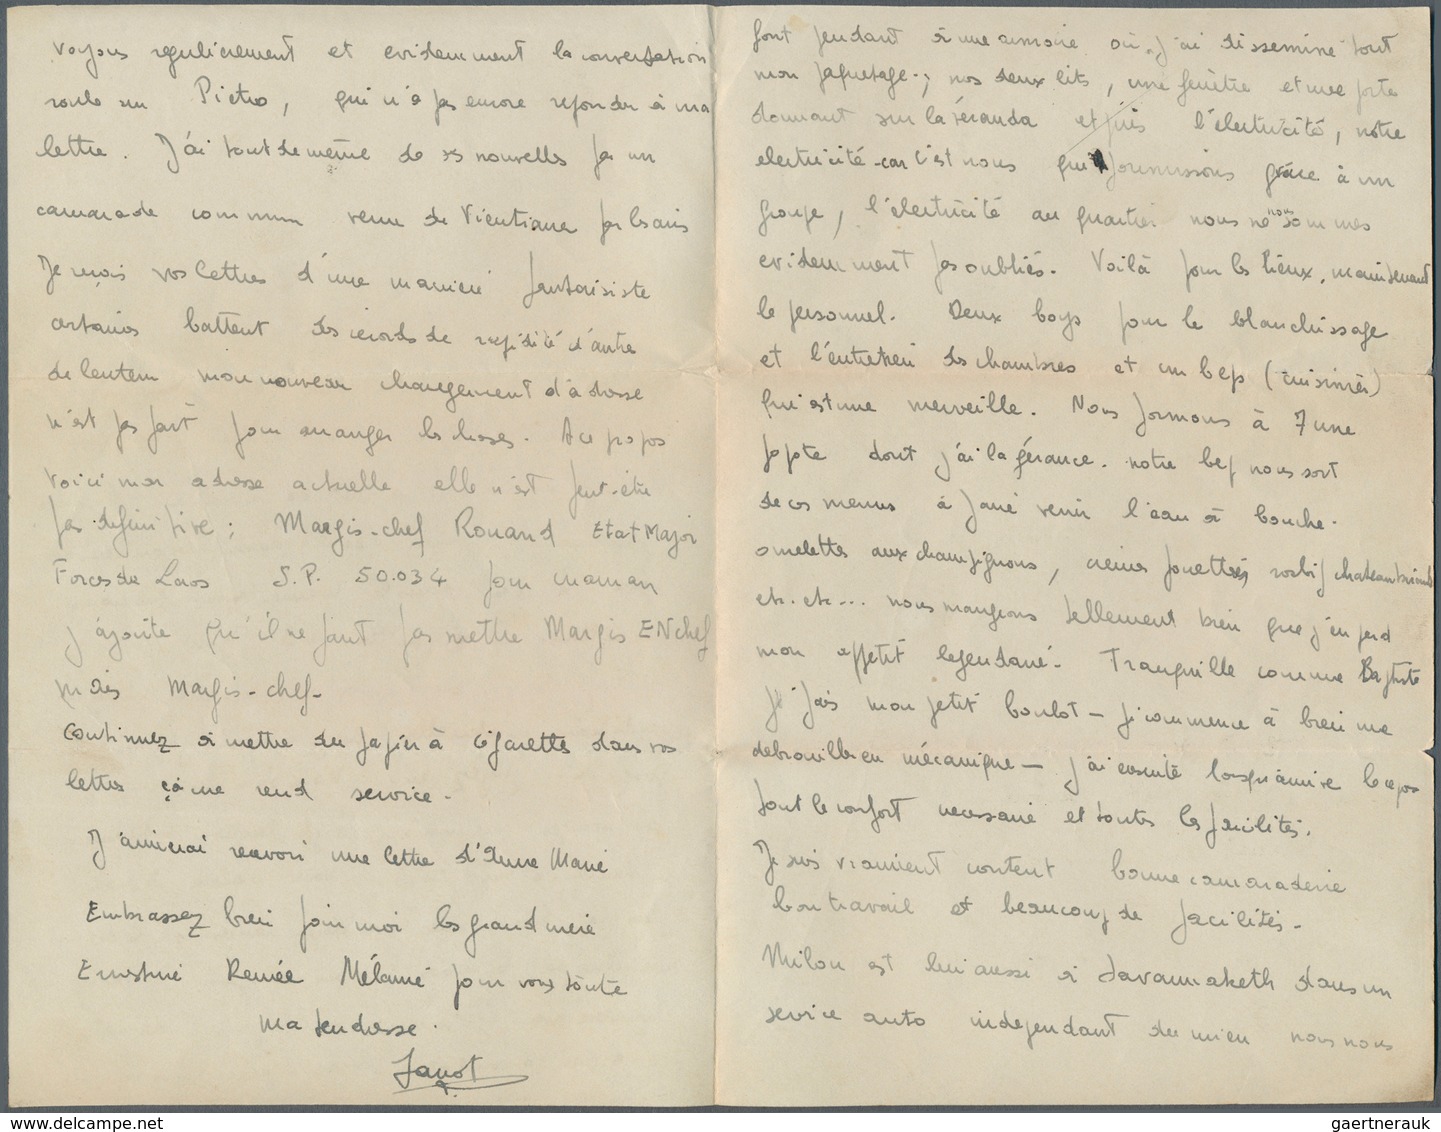 font pendant à une armoire où j'ai disseminé tout
mon paquetage; nos deux lits, une fenêtre et une porte
donnant sur la véranda et puis l'électricité, notre
electricité car c'est nous qui fournissons grâce à un
groupe, l'électricité au quartier nous ne nous sommes
evidemment pas oubliés. Voilà pour les lieux, maintenant
le personnel. Deux boys pour le blanchissage
et l'entretien des chambres et un bep (cuisinier)
qui est une merveille. Nous formons à 7 une
popote dont j'ai la gérance. notre bep nous sort
de ces menus à faire venir l'eau à la bouche.
omelettes aux champignons, rosbif chateaubriands
etc. etc... nous mangeons tellement bien que j'en perd
mon appetit legendaire. Tranquille comme Baptiste
je fais mon petit boulot - je commence à bien me
debrouiller en mécanique - j'ai ensuite lorsqu'arrive le repos
tout le confort necessaire et toutes les facilités.
Je suis vraiment content bonne camaraderie
bon travail et beaucoup de facilités.
Milou est lui aussi à Savannaketh dans un
service auto independant du mien nous nous
voyons regulièrement et evidemment la conversation
roule sur Pietro, qui n'a pas encore repondu à ma
lettre. J'ai tout de même de ses nouvelles par un
camarade commun venu de Vientiane
Je reçois vos lettres d'une manière fantaisiste
certaines battent des records de rapidité d'autre
de lenteur mon nouveau changement d'adresse
n'est pas fait pour arranger les choses. A ce propos
voici mon adresse actuelle elle n'est peut-être
pas definitive; Margis-chef Rouand Etat Major
Forces du Laos S.P. 50.034 pour maman
j'ajoute qu'il ne faut pas mettre Margis EN chef
mais Margis-chef-
Continuez à mettre du papier à cigarettes dans vos
lettres ça me rend service.
J'aimerai recevoir une lettre d'Anne Marie
Embrassez bien pour moi les grand mère
Ernestine Renée Mélanie pour vous toute
ma tendresse.
Janot
gaertnerauk